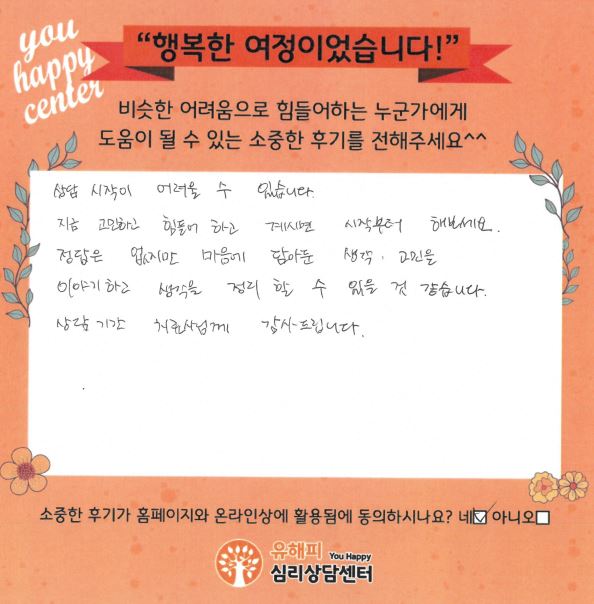 you
happy
center
“행복한 여정이었습니다!”
비슷한 어려움으로 힘들어하는 누군가에게
도움이 될 수 있는 소중한 후기를 전해주세요^^
상담 시작이 어려울 수 있습니다.
지금 고민하고 힘들어 하고 계시면 시작부터 해보세요.
정답은 없지만 마음에 담아둔 생각, 고민을
이야기하고 생각을 정리 할 수 있을 것 같습니다.
상담 기간 치료사님께 감사드립니다.
소중한 후기가 홈페이지와 온라인상에 활용됨에 동의하시나요? 네☑ 아니오☐
유해피 You Happy
심리상담센터